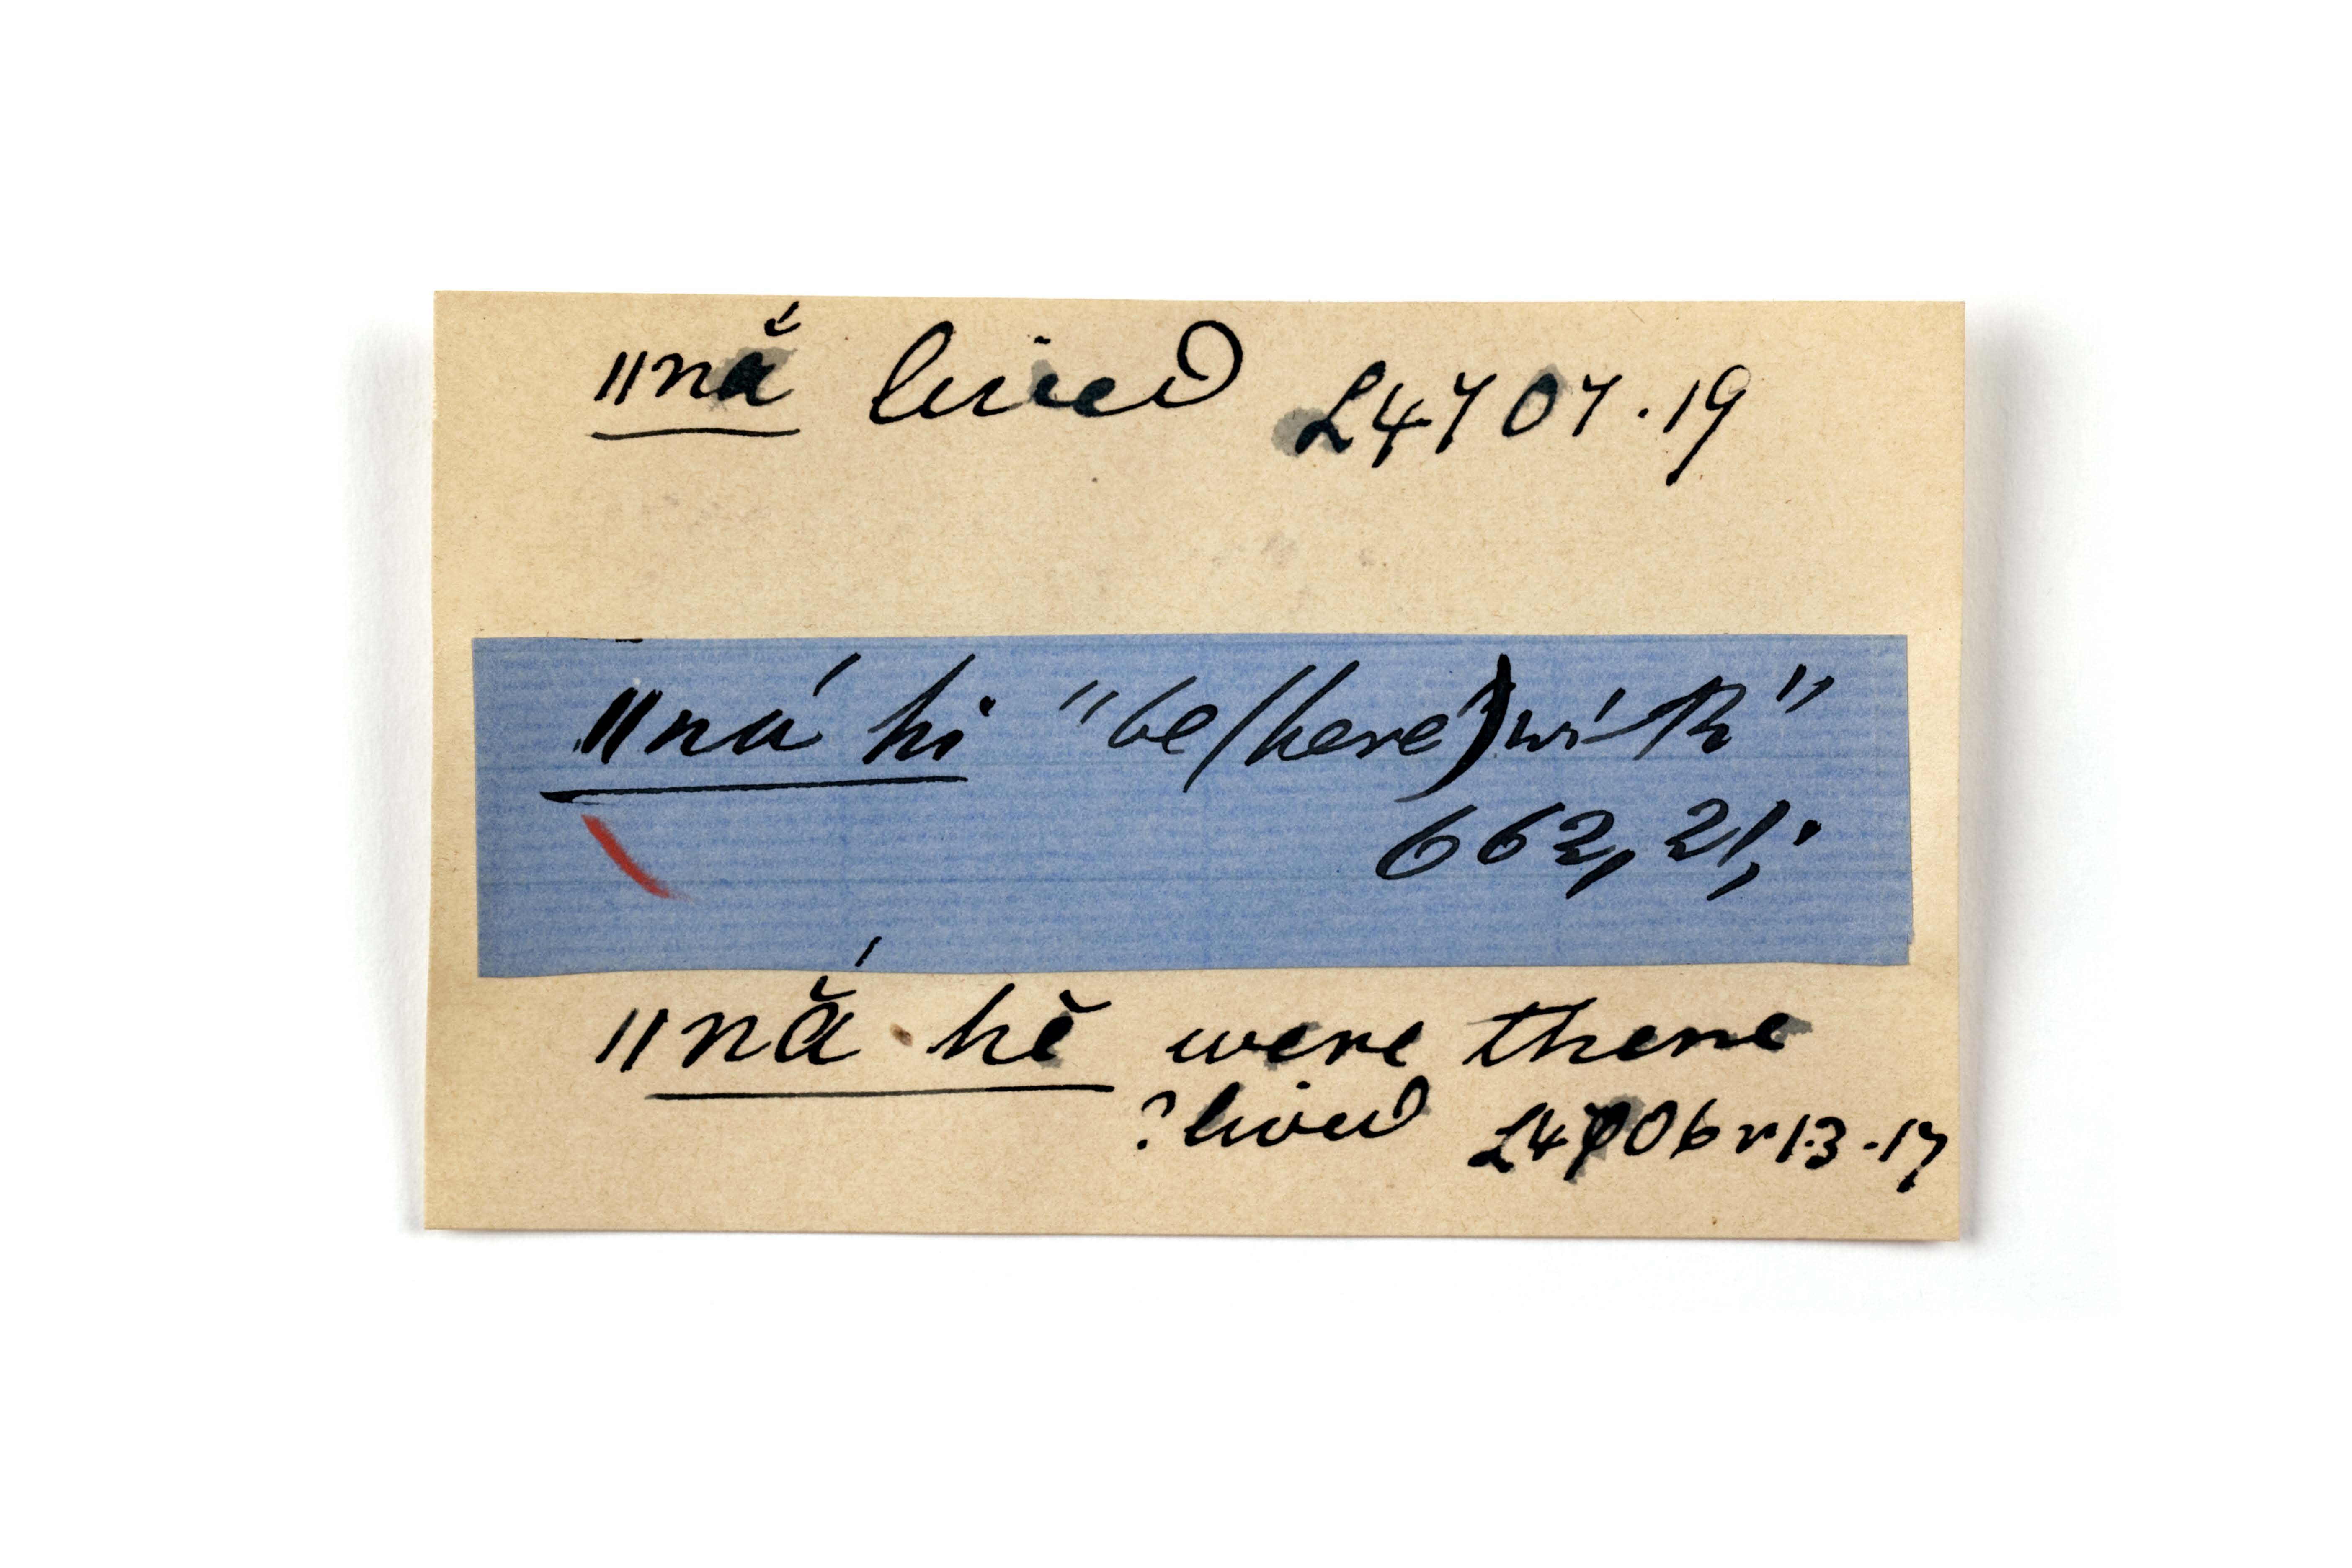 ǁnắ lived L4707.19
ǁná hi "be (here) with"
662, 21;
ǁnắ hĕ were there
? lived L4706r13-17